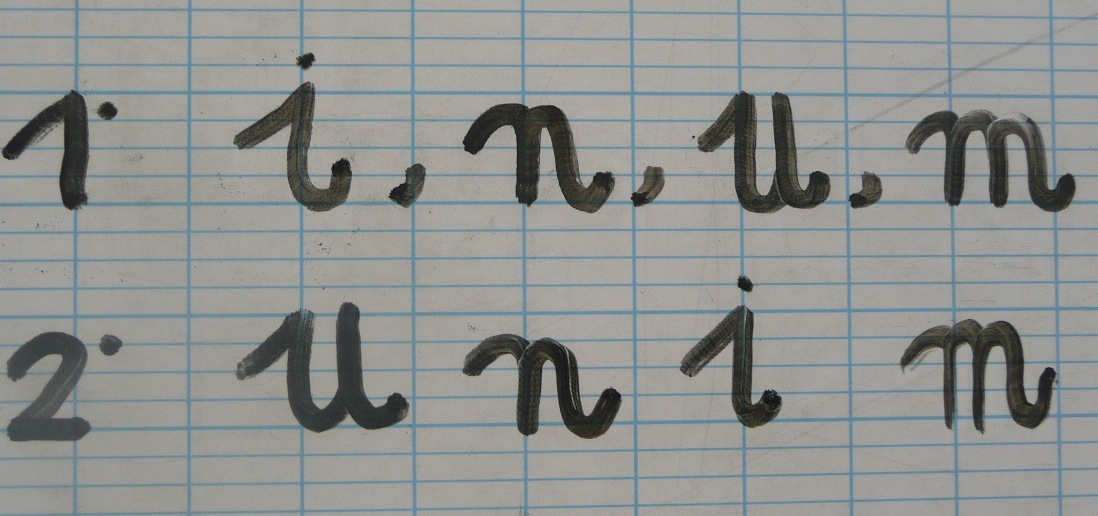 1. i, n, u, m
2. u n i m